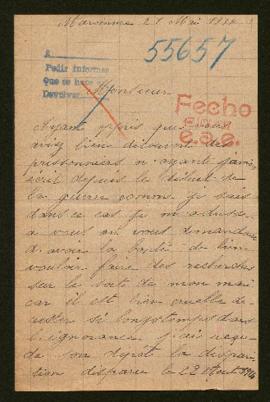 Maromme 21 Mai 1916
55657
A
Pedir informes
que se hace
Devolver
Monsieur
Fecho
e.a.e.
Ayant appris que vous
bien des
prisonniers n'ayant jamais
écrit depuis le début de
la guerre comme je suis
dans ce cas je m'adresse
a vous en vous demandant
d'avoir la bonté de bien
vouloir faire des recherches
sur le sort de mon mari
car il est bien cruelle de
rester si longtemps dans
l'ignorance j'ai reçu
de son dépôt la dispari-
tion disparu le 22 Aout 1914